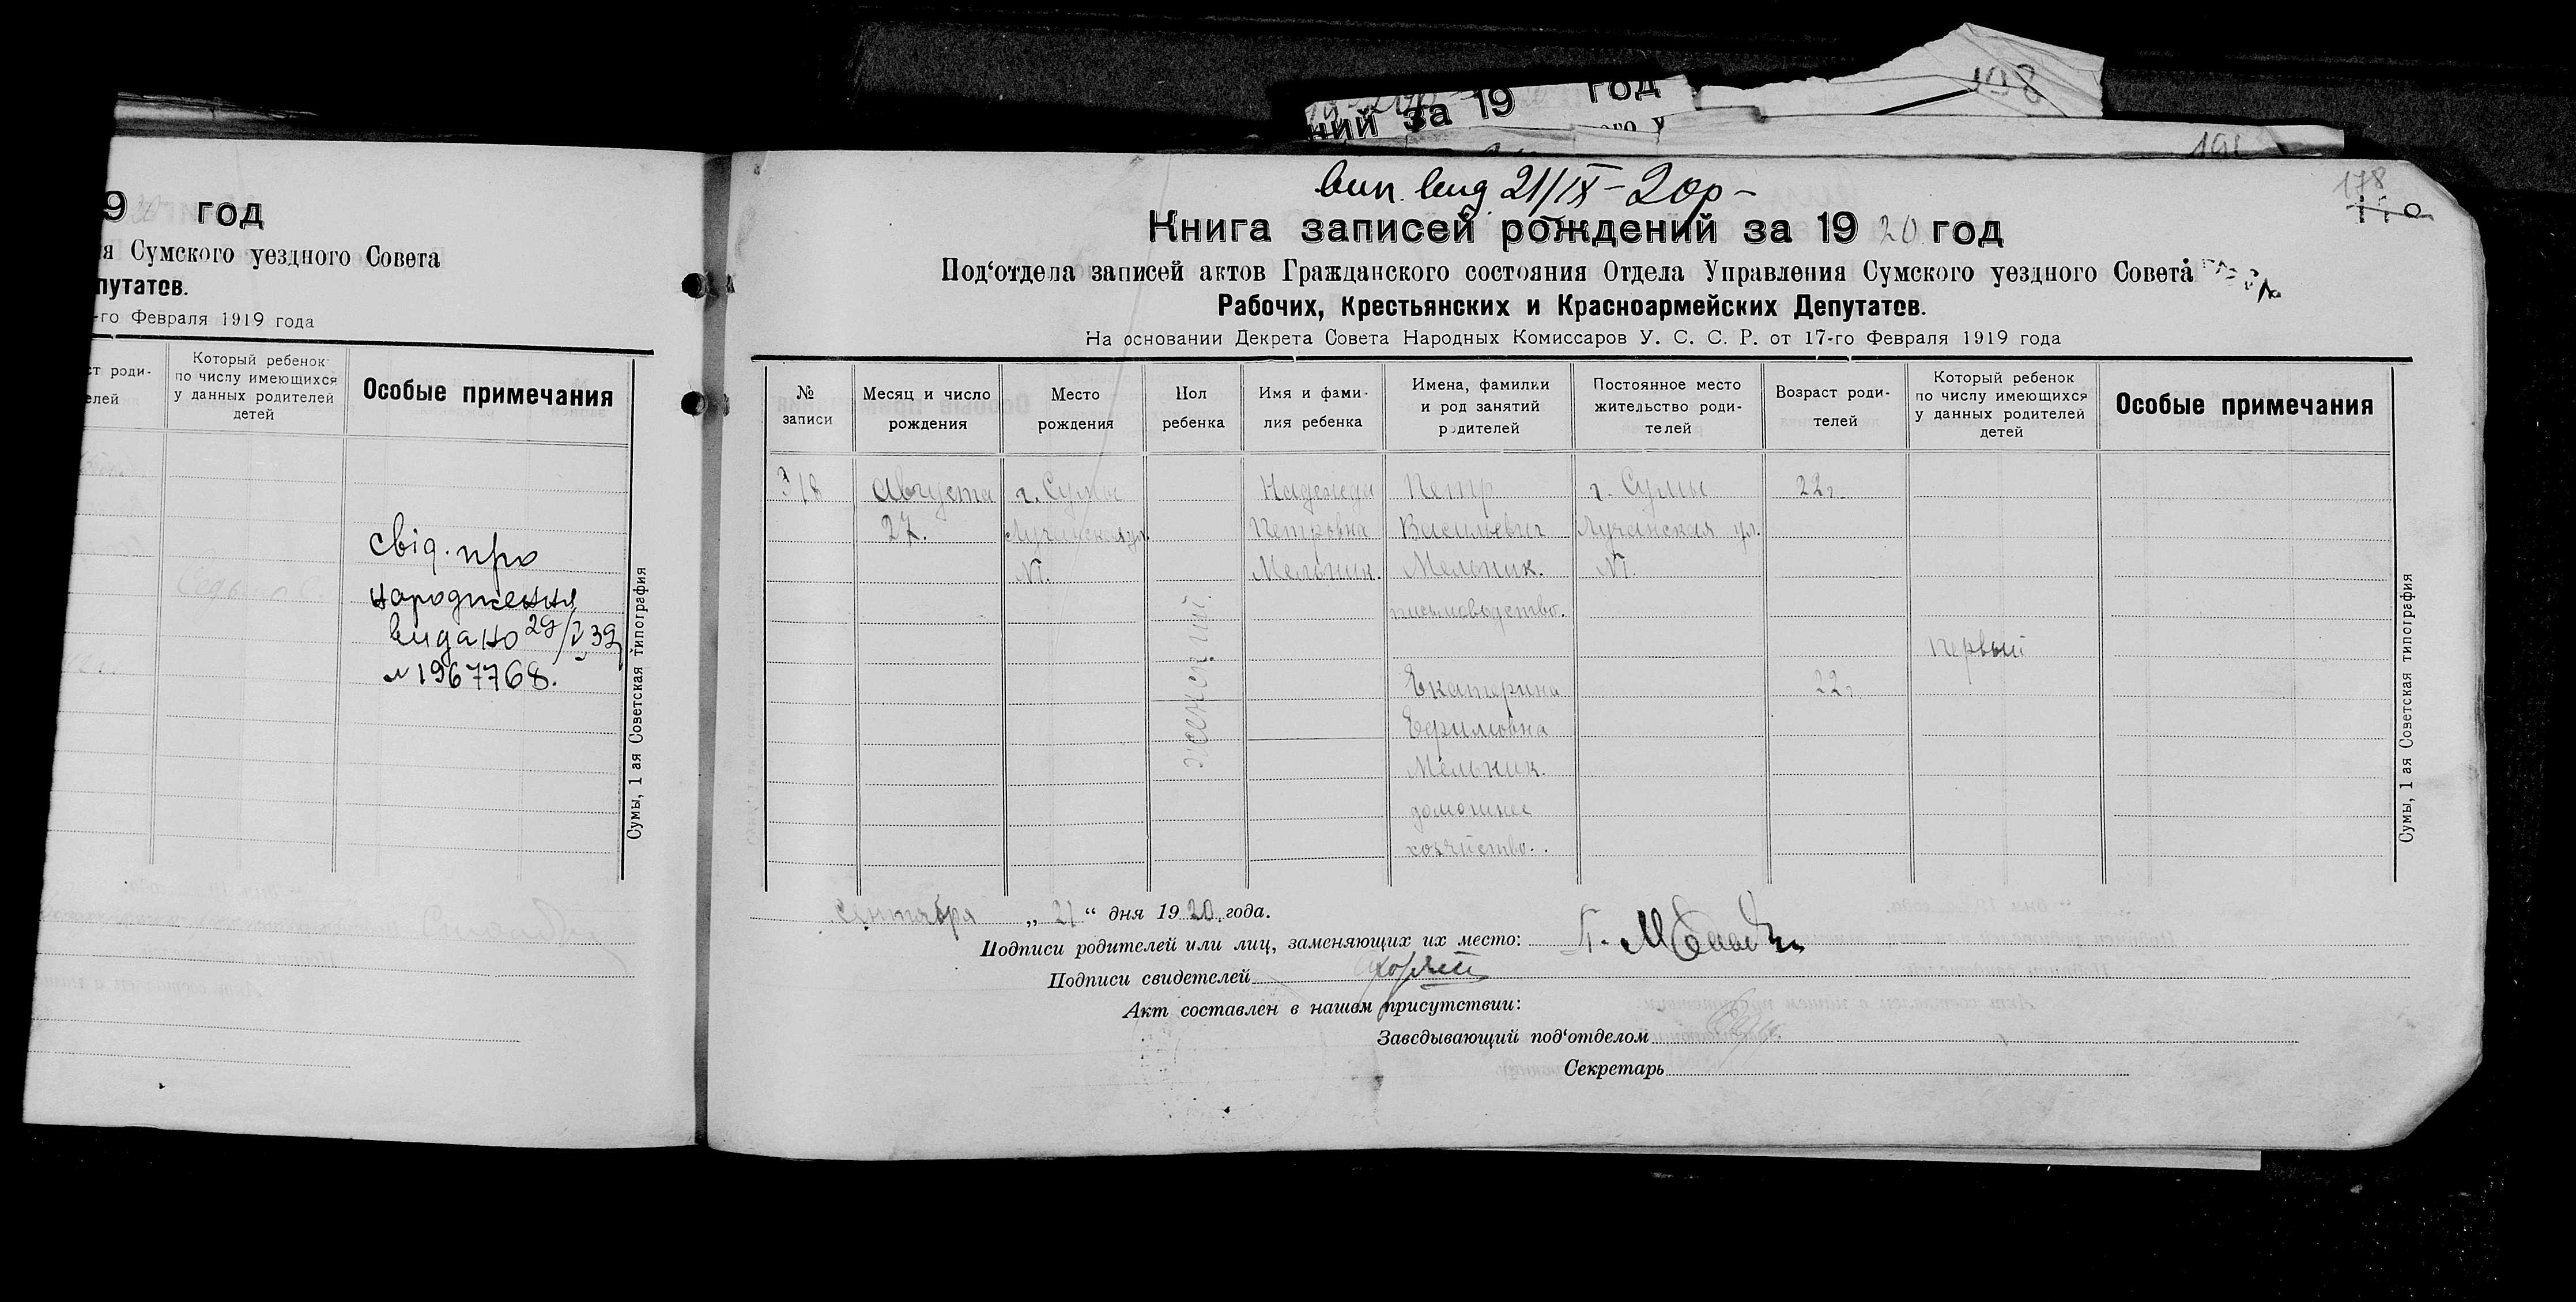 ний за 19 год
198
9 год
я Сумского уездного Совета
путатов.
-го Февраля 1919 года
ст роди-
елей
Который ребенок
по числу имеющихся
у данных родителей
детей
Особые примечания
свід. про
народження
видано 29/V 39
№ 1967768.
Сумы, 1 ая Советская типография
вип. вид 21/IX – 20р –
178
Книга записей рождений за 1920 год
Под‘отдела записей актов Гражданского состояния Отдела Управления Сумского уездного Совета
Рабочих, Крестьянских и Красноармейских Депутатов.
На основании Декрета Совета Народных Комиссаров У. С. С. Р. от 17-го Февраля 1919 года
№
записи
Месяц и число
рождения
Место
рождения
Пол
ребенка
Имя и фами-
лия ребенка
Имена, фамилии
и род занятий
родителей
Постоянное место
жительство роди-
телей
Возраст роди-
телей
Который ребенок
по числу имеющихся
у данных родителей
детей
Особые примечания
318
Августа
27.
г. Сумы
Лучанская ул.
женский.
Надежда
Петровна
Мельник.
Петр
Васильевич
Мельник.
письмоводство.
Екатерина
Ефимовна
Мельник.
домашнее
хозяйство.
г. Сумы
Лучанская ул.
22 г.
22 г.
первый
Сумы, 1 ая Советская типография
сентября „21“ дня 1920 года.
Подписи родителей или лиц, заменяющих их место:
Подписи свидетелей
Акт составлен в нашем присутствии:
Заведывающий под‘отделом
Секретарь